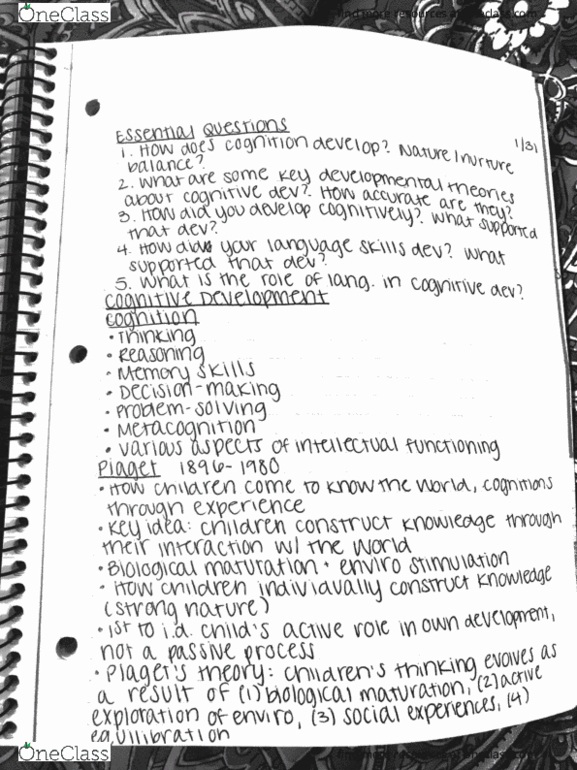 OneClass
find more resources at oneclass.com
Essential Questions
1/31
1. How does cognition develop? Nature/nurture
balance?
2. What are some key developmental theories
about cognitive dev? How accurate are they?
3. How did you develop cognitively? What supported
that dev?
4. How did your language skills dev? What
supported that dev?
5. What is the role of lang. in cognitive dev?
Cognitive Development
Cognition
• Thinking
• Reasoning
• Memory skills
• Decision-making
• Problem-solving
• Metacognition
• various aspects of intellectual functioning
Piaget 1896-1980
• How children come to know the world, cognitions
through experience
• Key idea: children construct knowledge through
their interaction w/ the world
• Biological maturation + enviro stimulation
• How children individually construct knowledge
(strong nature)
• 1st to i.d. child's active role in own development,
not a passive process
• Piaget's theory: children's thinking evolves as
a result of (1) biological maturation, (2) active
exploration of enviro, (3) social experiences, (4)
equilibration
OneClass
find more resources at oneclass.com